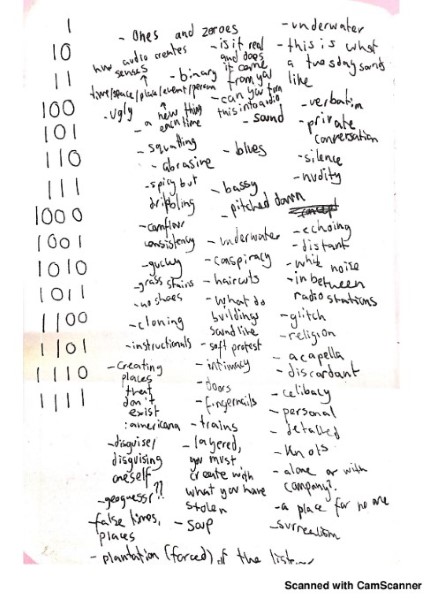 1
10
11
100
101
110
111
1000
1001
1010
1011
1100
1101
1110
1111
- Ones and zeroes
audio creates
senses
- binary
time/space/place/event/person
- ugly
a new thing
each time
- squatting
- abrasive
- spicy but
dribbling
- cornflour
consistency
- gucky
- grass stains
- no shoes
- cloning
- instructionals
- Creating
places
that
don't
exist
: americana
- disguise/
disguising
oneself
- geoguessr??
- false lives,
places
- plantation (forced) of the listener
- is it real
and does
it come
from you
- can you turn
this into audio
- sound
- blues
- bassy
- pitched down
- underwater
- conspiracy
- haircuts
- what do
buildings
sound like
- soft protest
- intimacy
- doors
- fingernails
- trains
- layered,
you must
create with
what you have
stolen
- soup
- underwater
- this is what
a tuesday sounds
like
- verbatim
- private
conversation
- silence
- nudity
- echoing
- distant
- white noise
- in between
radio stations
- glitch
- religion
- acapella
- discordant
- celibacy
- personal
- detailed
- knots
- alone or with
company?
- a place for no one
- surrealism
Scanned with CamScanner